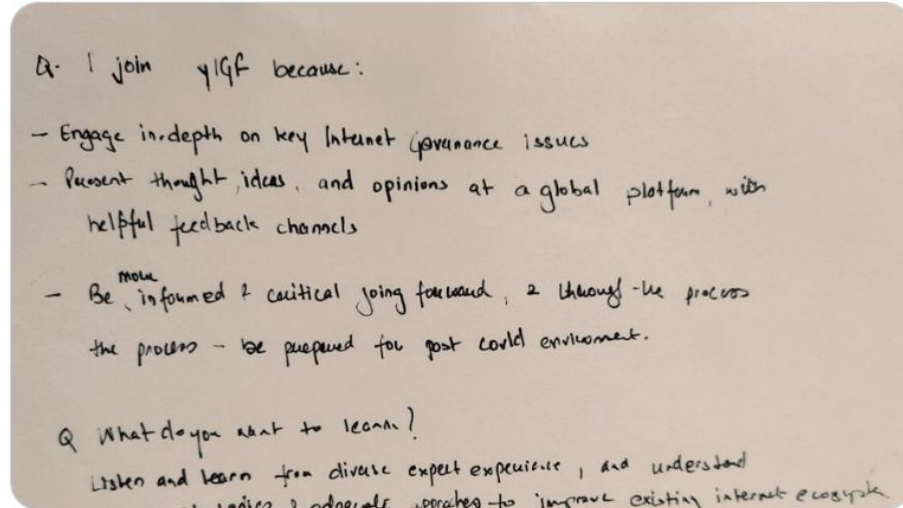 Q. I join yIGF because:
- Engage in-depth on key Internet Governance issues
- Present thought, ideas, and opinions at a global platform, with
helpful feedback channels
more
- Be informed & critical going forward, & through the process
the process - be prepared for post covid environment.
Q What do you want to learn?
Listen and learn from diverse expert experience, and understand
& advocate approaches to improve existing internet ecosystem